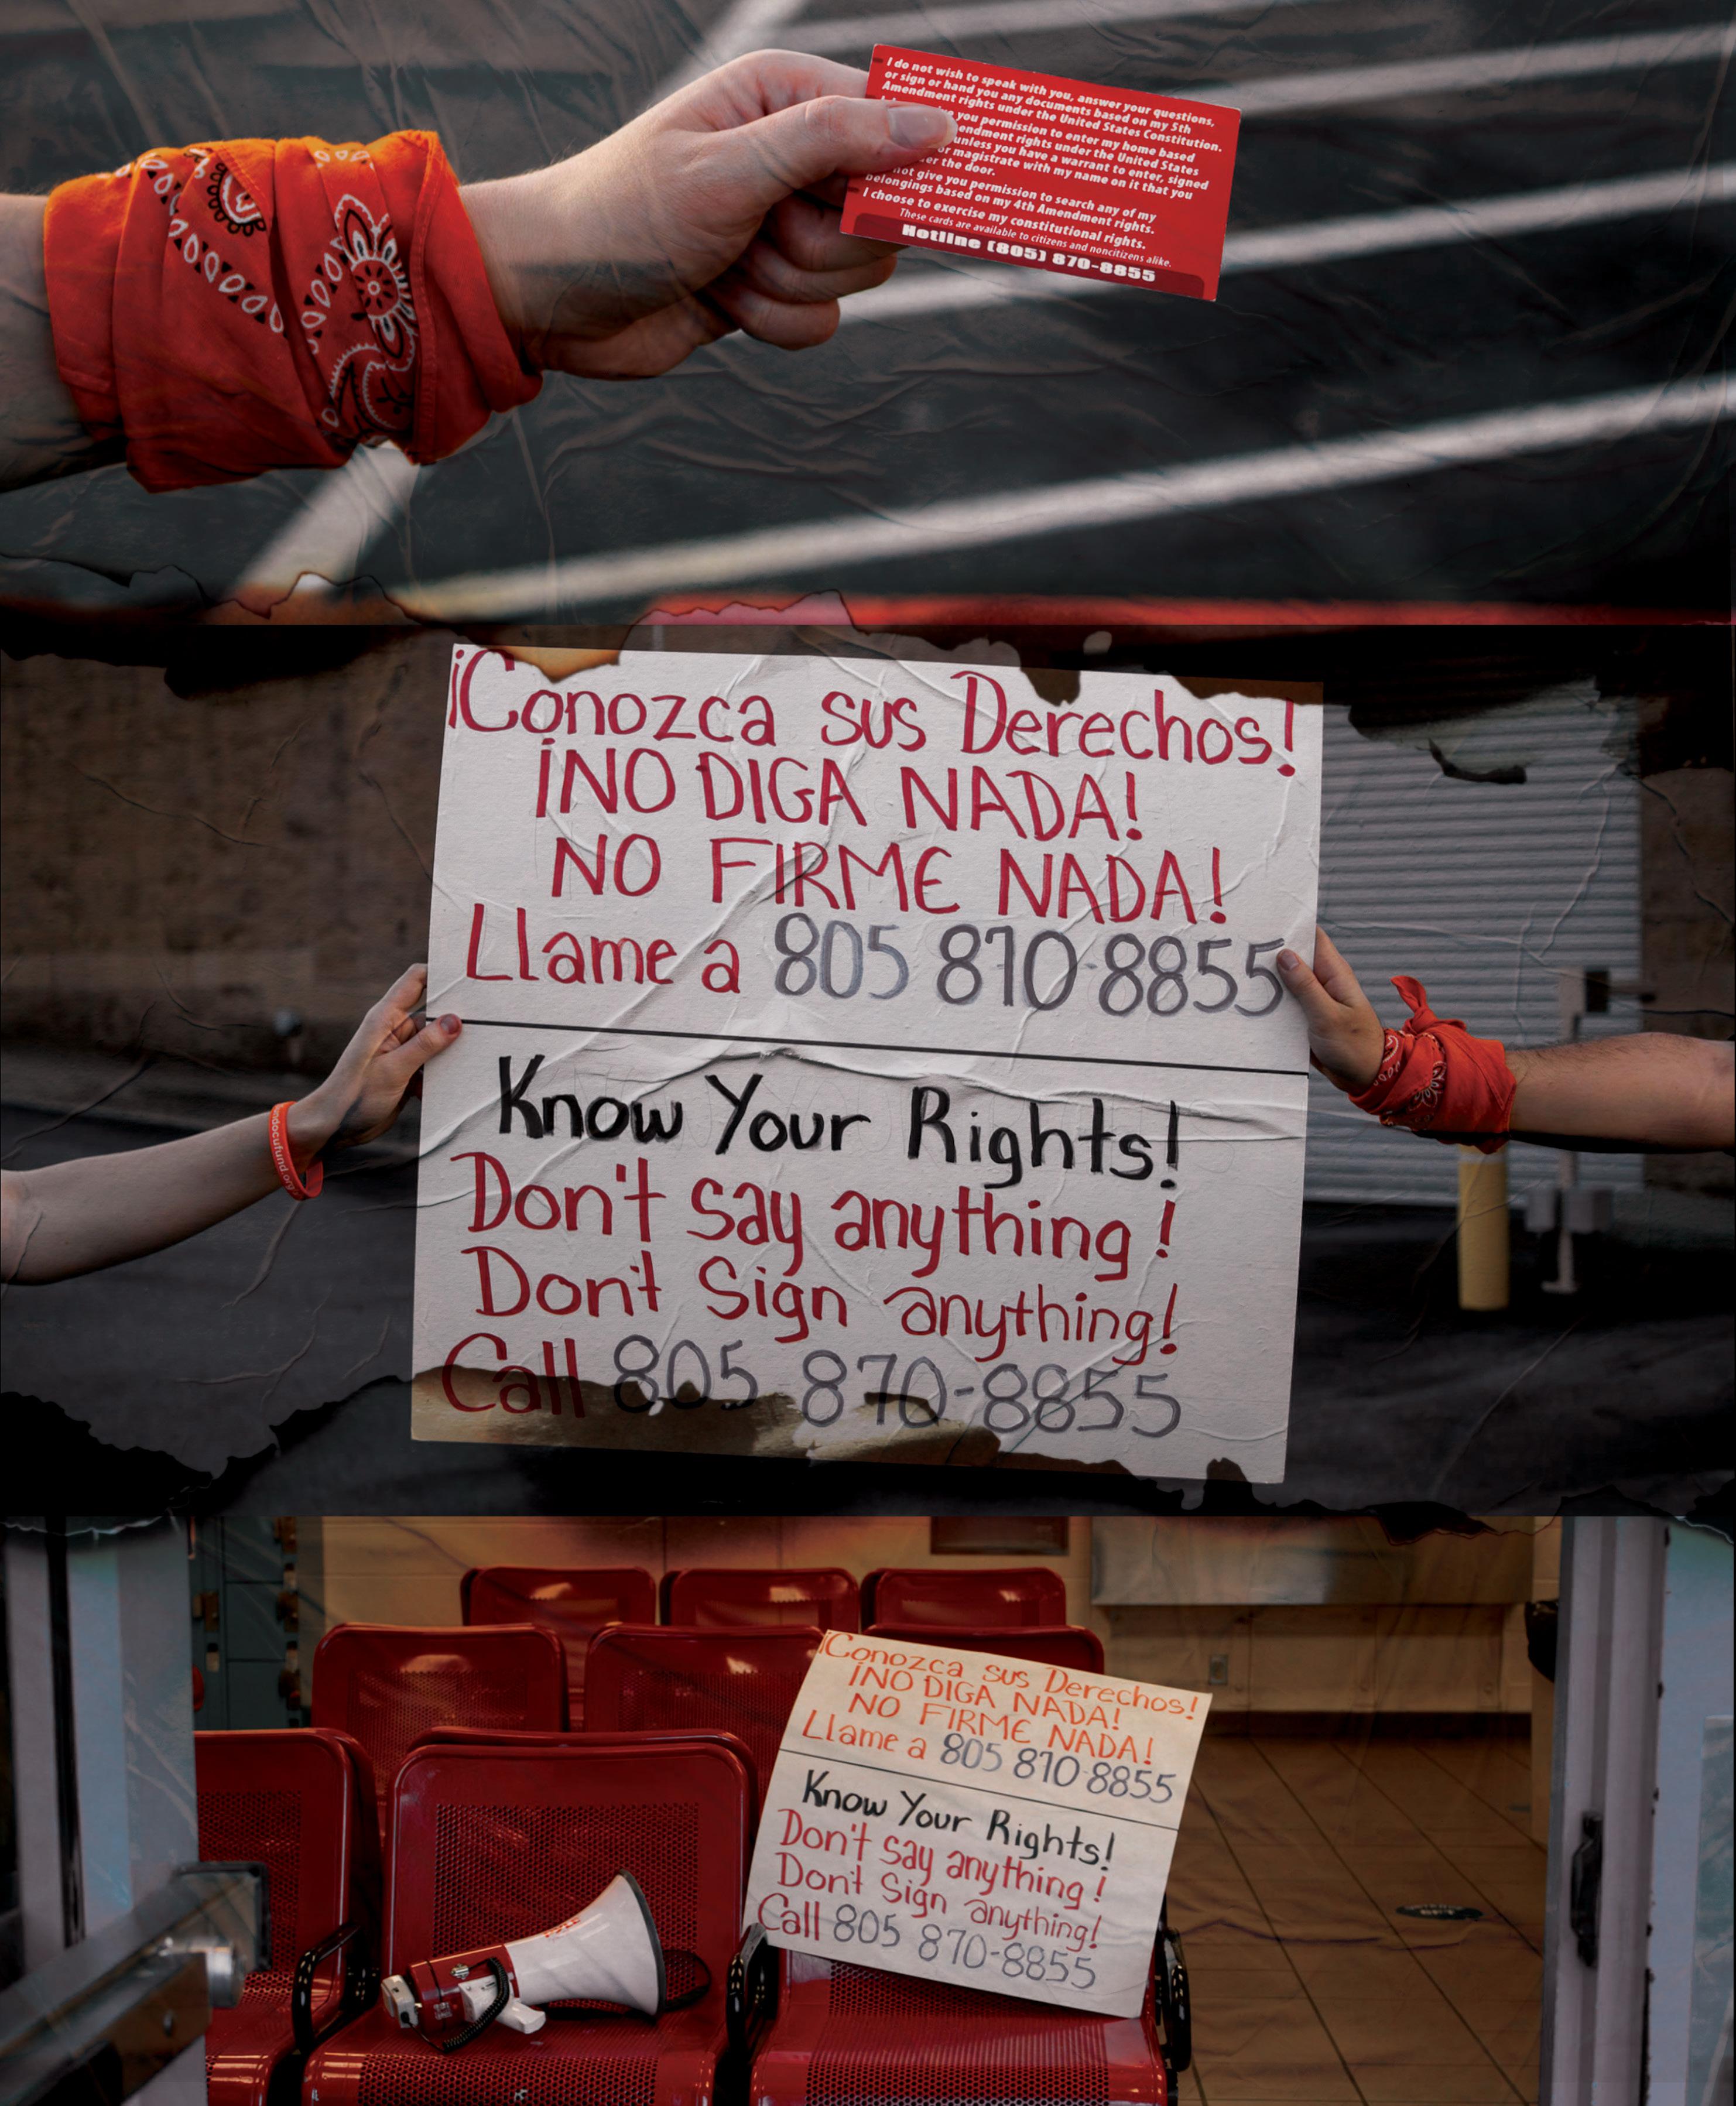 I do not wish to speak with you, answer your questions,
or sign or hand you any documents based on my 5th
Amendment rights under the United States Constitution.
you permission to enter my home based
endment rights under the United States
unless you have a warrant to enter, signed
or magistrate with my name on it that you
er the door.
not give you permission to search any of my
belongings based on my 4th Amendment rights.
I choose to exercise my constitutional rights.
These cards are available to citizens and noncitizens alike.
Hotline (805) 870-8855
¡Conozca sus Derechos!
¡NO DIGA NADA!
NO FIRME NADA!
Llame a 805 870-8855
Know Your Rights!
Don't say anything!
Don't Sign anything!
Call 805 870-8855
ndocufund.org
¡Conozca sus Derechos!
¡NO DIGA NADA!
NO FIRME NADA!
Llame a 805 870-8855
Know Your Rights!
Don't say anything!
Don't Sign anything!
Call 805 870-8855